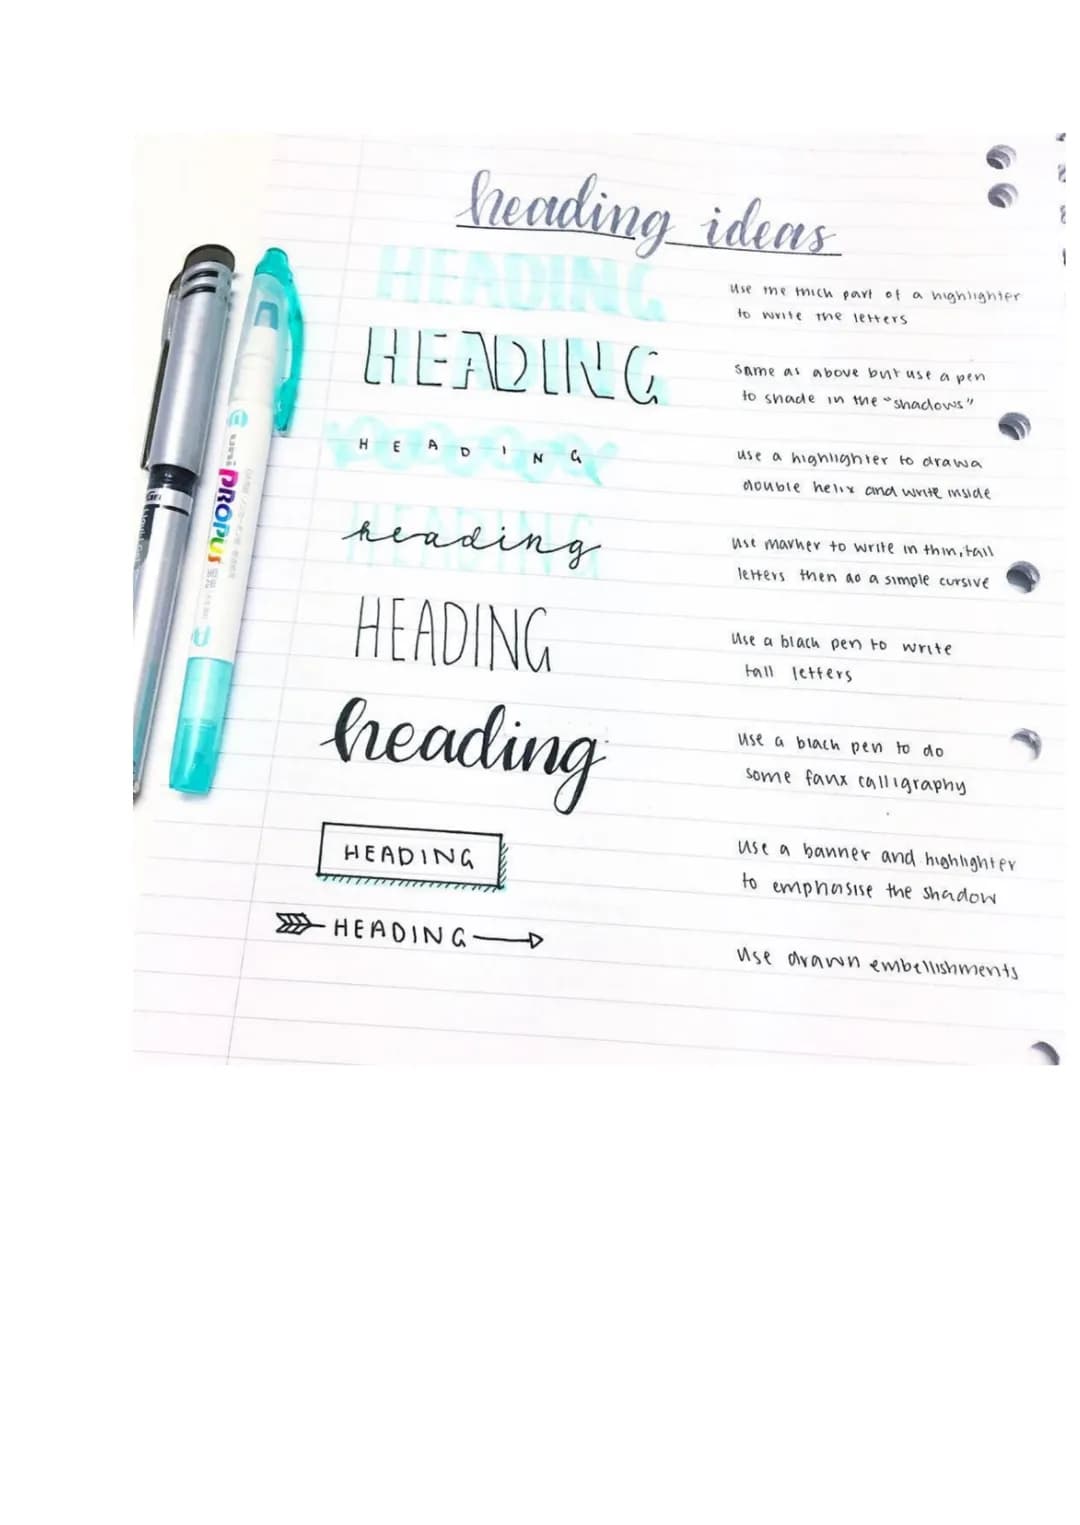 heading ideas
HEADING
use the thick part of a highlighter
to write the letters
HEADING
same as above but use a pen
to shade in the "shadows"
HEADING
use a highlighter to draw a
double helix and write inside
heading
HEADING
use marker to write in thin, tall
letters then do a simple cursive
HEADING
use a black pen to write
tall letters
heading
use a black pen to do
some faux calligraphy
HEADING
use a banner and highlighter
to emphasise the shadow
HEADING
use drawn embellishments
uni PROPUS